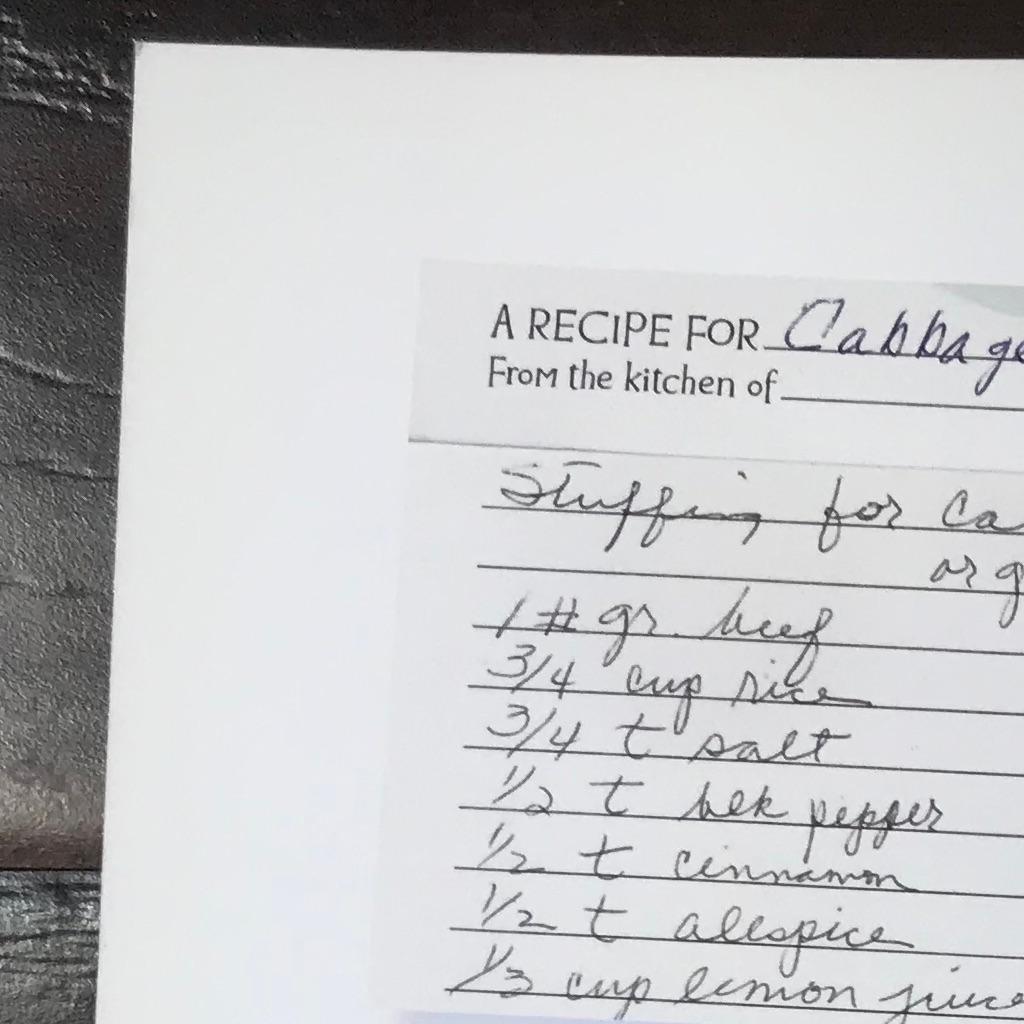 A RECIPE FOR Cabbage
From the kitchen of
Stuffing for Ca
or g
1 # gr. beef
3/4 cup rice
3/4 t salt
1/2 t blk pepper
1/2 t cinnamon
1/2 t allspice
1/3 cup lemon juice